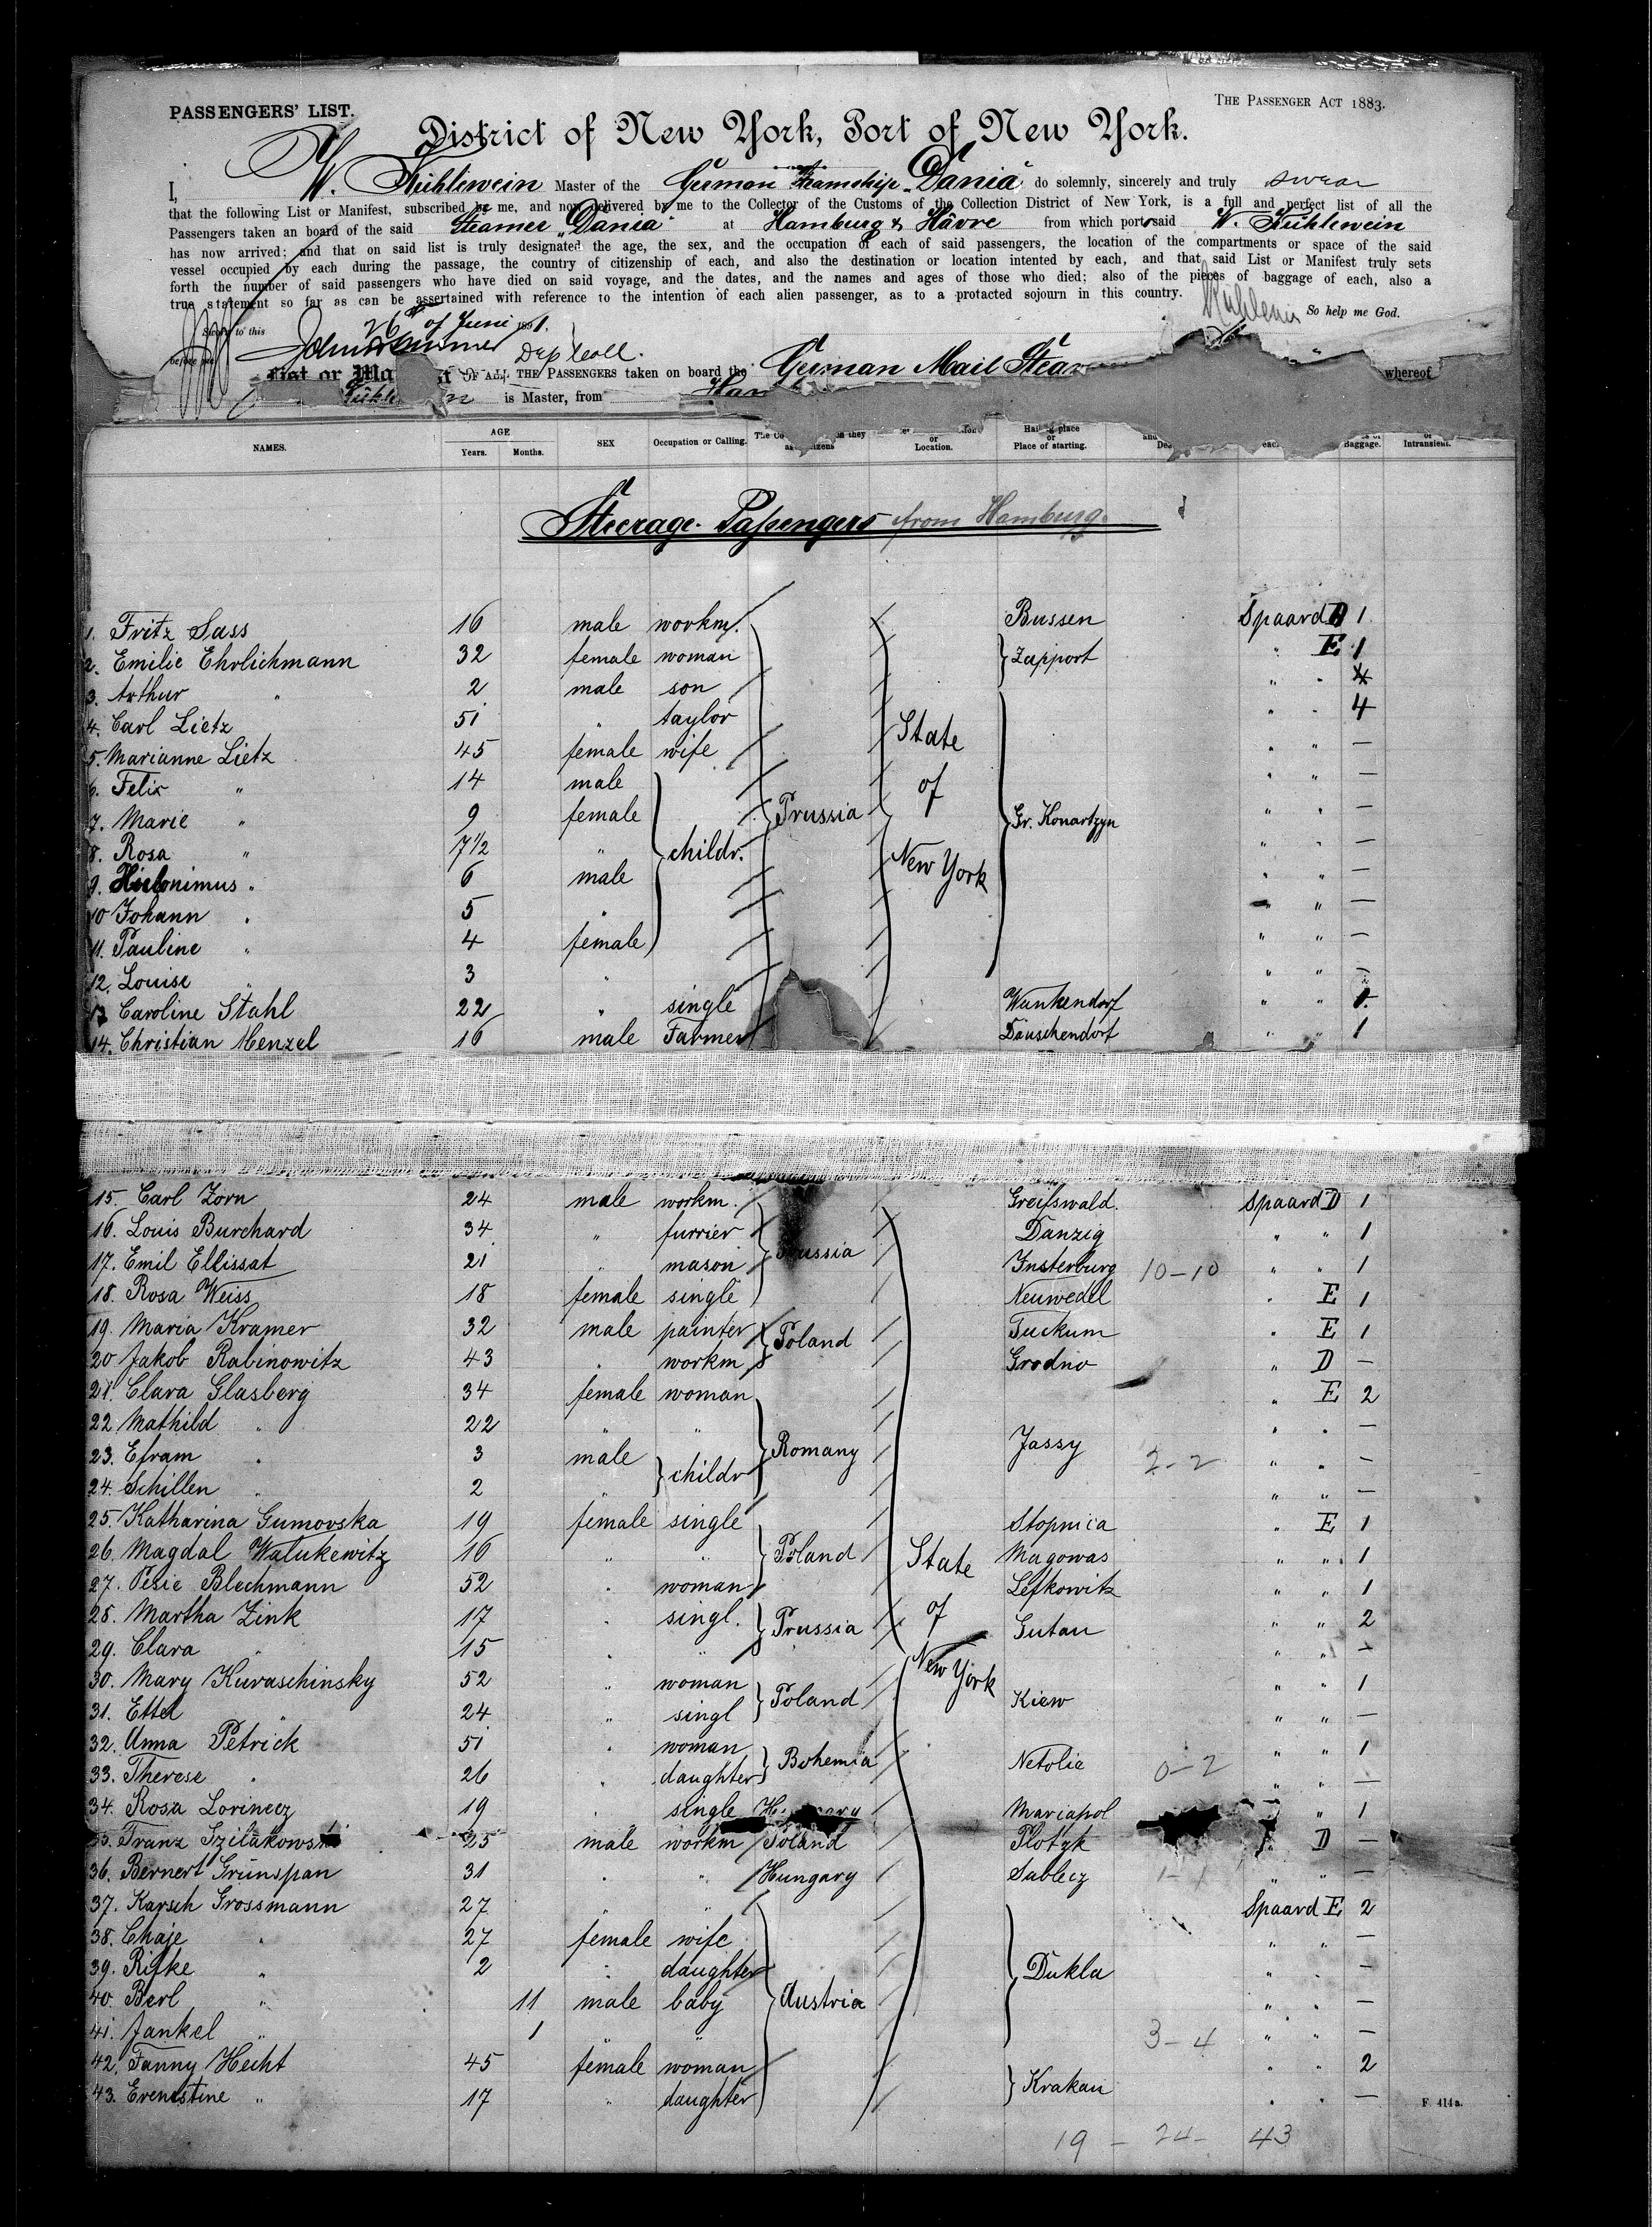 PASSENGERS' LIST.
THE PASSENGER ACT 1883.
District of New York, Port of New York.
I, W. Kühlewein Master of the German Steamship "Dania" do solemnly, sincerely and truly swear
that the following List or Manifest, subscribed by me, and now delivered by me to the Collector of the Customs of the Collection District of New York, is a full and perfect list of all the
Passengers taken an board of the said Steamer "Dania" at Hamburg & Hâvre from which port said W. Kühlewein
has now arrived; and that on said list is truly designated the age, the sex, and the occupation of each of said passengers, the location of the compartments or space of the said
vessel occupied by each during the passage, the country of citizenship of each, and also the destination or location intented by each, and that said List or Manifest truly sets
forth the number of said passengers who have died on said voyage, and the dates, and the names and ages of those who died; also of the pieces of baggage of each, also a
true statement so far as can be assertained with reference to the intention of each alien passenger, as to a protacted sojourn in this country.
Kühlewein So help me God.
Sworn to this 26th of Juni 1891.
before me Dep Coll.
List or OF ALL THE PASSENGERS taken on board the German Mail Stea whereof
is Master, from Ham
NAMES. AGE Years. Months. SEX Occupation or Calling. or Location. Place of starting. Baggage. Intransient.
Steerage Passengers from Hamburg.
1. Fritz Sass 16 male workm. Bussen Spaard D 1
2. Emilie Ehrlichmann 32 female woman Zapport " E 1
3. Arthur " 2 male son " "
4. Carl Lietz 51 " taylor State " " 4
5. Marianne Lietz 45 female wife " " —
6. Felix " 14 male of " " —
7. Marie " 9 female Prussia Gr. Konartzyn " " —
8. Rosa " 7 1/2 " childr. New York " " —
9. Hielonimus " 6 male " " —
10 Johann " 5 " " " —
11. Pauline " 4 female " " —
12. Louise " 3 " " " —
13 Caroline Stahl 22 " single Wankendorf " " 1
14. Christian Menzel 16 male Farmer Dauschendorf " " 1
15. Carl Zorn 24 male workm. Greifswald. Spaard D 1
16. Louis Burchard 34 " furrier Danzig " " 1
17. Emil Ellissat 21 " mason Prussia Insterburg 10-10 " " 1
18. Rosa Weiss 18 female single Neuwedel " E 1
19. Maria Kramer 32 male painter Poland Tuckum " E 1
20 Jakob Rabinowitz 43 " workm Grodno " D —
21. Clara Glasberg 34 female woman " E 2
22 Mathild " 22 " " " " —
23. Efram " 3 male Romany Jassy 2-2 " " —
24. Schillen " 2 " childr " " —
25. Katharina Gumovska 19 female single Stopnica " E 1
26. Magdal Walukewitz 16 " " Poland State Magowas " " 1
27. Pesie Blechmann 52 " woman Lefkowitz " " 1
28. Martha Zink 17 " singl. Prussia of Gutau " " 2
29. Clara " 15 " " " " —
30. Mary Kuraschinsky 52 " woman Poland New York Kiew " " 1
31. Ettel " 24 " singl " " —
32. Anna Petrick 51 " woman Bohemia Netolie " " 1
33. Therese " 26 " daughter 0-2 " " —
34. Rosa Lorinecz 19 " single Hungary Mariapol " 1
35. Franz Szilakowski 25 male workm Poland Plotzk " D —
36. Bernert Grünspan 31 " " Hungary Sablecz 1-1 " " —
37. Karsch Grossmann 27 " " Spaard E 2
38. Chaje " 27 female wife " " —
39. Rifke " 2 " daughter Dukla " " —
40. Berl " 11 male baby Austria " " —
41. Jankel " 1 " " 3-4 " " —
42. Fanny Hecht 45 female woman Krakau " " 2
43. Ernestine " 17 " daughter " " —
F. 414a.
19 - 24 - 43